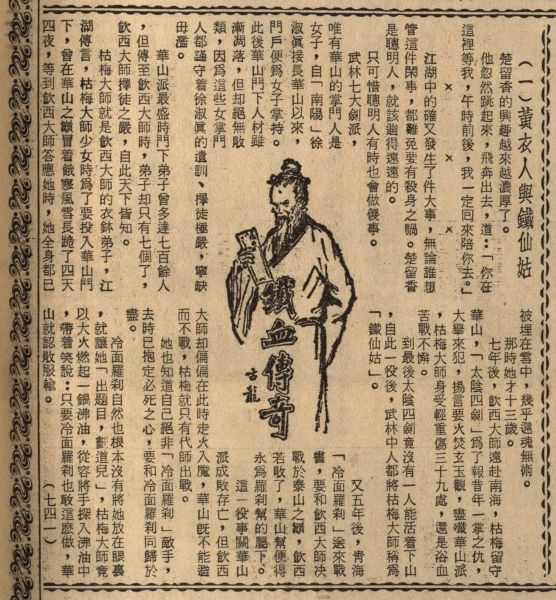 （一）黃衣人與鐵仙姑
楚留香的興趣越來越濃厚了。
他忽然跳起來，飛奔出去，道：「你在
這裡等我，午時前後，我一定回來陪你去。」
× × ×
江湖中的確又發生了件大事，無論誰想
管這件閒事，都難免要有殺身之禍。楚留香
是聰明人，就該避得遠遠的。
只可惜聰明人有時也會做傻事。
武林七大劍派，
唯有華山的掌門人是
女子，自「南陽」徐
淑眞接長華山以來，
門戶便爲女子掌持。
此後華山門下人材雖
漸凋落，但却絕無敗
類，因爲這些女掌門
人都謹守着徐淑眞的遺訓，擇徒極嚴，寧缺
毋濫。
華山派最盛時門下弟子曾多達七百餘人
，但傳至飲西大師時，弟子却只有七個了，
飲西大師擇徒之嚴，自此天下皆知。
枯梅大師就是飲西大師的衣鉢弟子，江
湖傳言，枯梅大師少女時爲了要投入華山門
下，曾在華山之巔冒着餓寒風雪長跪了四天
四夜，等到飲西大師答應她時，她全身都已
鐵血傳奇
古龍
被埋在雪中，幾乎還魂無術。
那時她才十三歲。
七年後，飲西大師遠赴南海，枯梅留守
華山，「太陰四劍」爲了報昔年一掌之仇，
大舉來犯，揚言要火焚玄玉觀，盡殲華山派
，枯梅大師身受輕重傷三十九處，還是浴血
苦戰不懈。
到最後太陰四劍竟沒有一人能活着下山
，自此一役後，武林中人都將枯梅大師稱爲
「鐵仙姑」。
又五年後，青海
「冷面羅刹」送來戰
書，要和飲西大師决
戰於泰山之巔，飲西
若敗了，華山幫便得
永爲羅刹幫的屬下。
這一役事關華山
派成敗存亡，但飲西
大師却偏偏在此時走火入魔，華山旣不能避
而不戰，枯梅就只有代師出戰。
她也知道自己絕非「冷面羅刹」敵手，
去時已抱定必死之心，要和冷面羅刹同歸於
盡。
冷面羅刹自然也根本沒有將她放在眼裏
，就讓她「出題目，劃道兒」，枯梅大師竟
以大火燃起一鍋沸油，從容將手探入沸油中
，帶着笑說：只要冷面羅刹也敢這麼做，華
山就認敗服輸。（七四一）